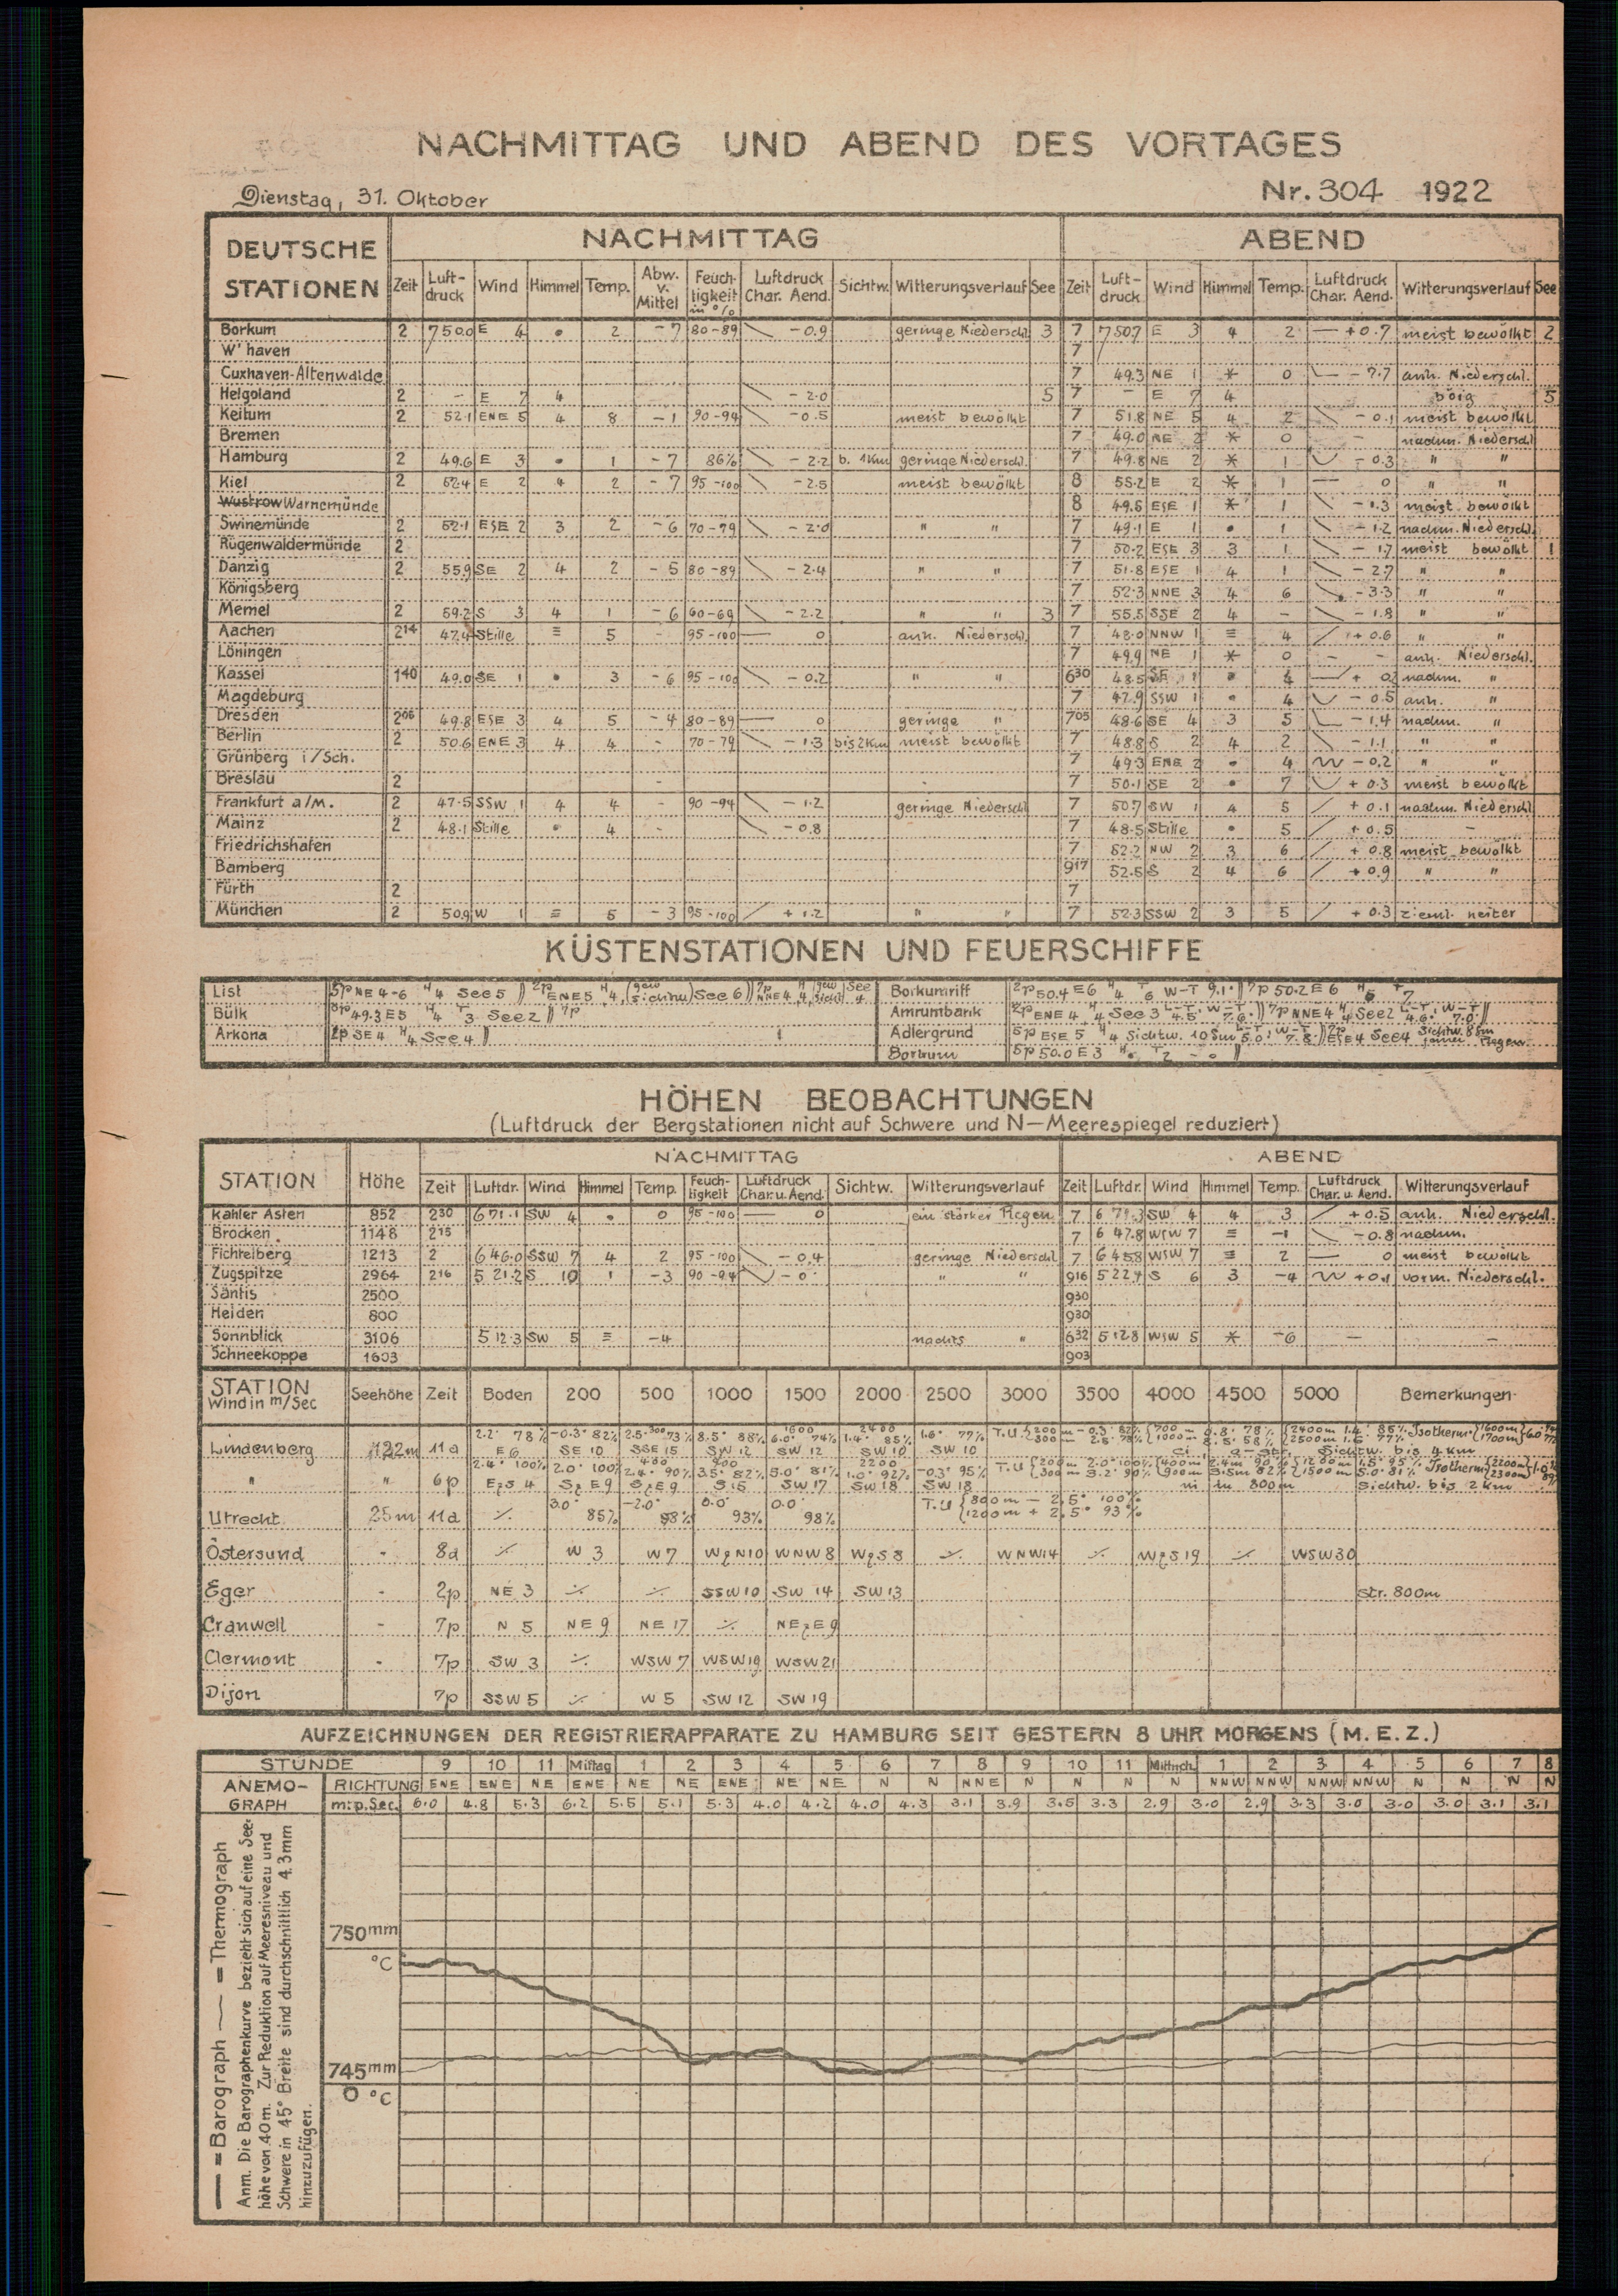 NACHMITTAG UND ABEND DES VORTAGES
Dienstag, 31. Oktober Nr. 304 1922
DEUTSCHE STATIONEN NACHMITTAG ABEND
Zeit Luft-druck Wind Himmel Temp. Abw. v. Mittel Feuch-tigkeit in % Luftdruck Char. Aend. Sichtw. Witterungsverlauf See Zeit Luft-druck Wind Himmel Temp. Luftdruck Char. Aend. Witterungsverlauf See
Borkum 2 750.0 E 4 • 2 -7 80-89 -0.9 geringe Niederschl. 3 7 750.7 E 3 4 2 +0.7 meist bewölkt 2
W'haven 7
Cuxhaven-Altenwalde 7 49.3 NE 1 * 0 anh. Niederschl.
Helgoland 2 - E 7 4 -2.0 5 7 - E 7 4 böig 5
Keitum 2 52.1 ENE 5 4 8 -1 90-94 -0.5 meist bewölkt 7 51.8 NE 5 4 2 -0.1 meist bewölkt
Bremen 7 49.0 NE 2 * 0 - nachm. Niederschl
Hamburg 2 49.6 E 3 • 1 -7 86% -2.2 b. 1Km geringe Niederschl. 7 49.8 NE 2 * 1 -0.3 " "
Kiel 2 52.4 E 2 4 2 -7 95-100 -2.5 meist bewölkt 8 55.2 E 2 * 1 0 " "
Wustrow Warnemünde 8 49.5 ESE 1 * 1 -1.3 meist bewölkt
Swinemünde 2 52.1 ESE 2 3 2 -6 70-79 -2.0 " " 7 49.1 E 1 • 1 -1.2 nachm. Niederschl.
Rügenwaldermünde 2 7 50.2 ESE 3 3 1 -1.7 meist bewölkt 1
Danzig 2 55.9 SE 2 4 2 -5 80-89 -2.4 " " 7 51.8 ESE 1 4 1 -2.7 " "
Königsberg 7 52.3 NNE 3 4 6 -3.3 " "
Memel 2 59.2 S 3 4 1 -6 60-69 -2.2 " " 3 7 55.5 SSE 2 4 - -1.8 " "
Aachen 2 14 47.4 Stille ≡ 5 - 95-100 0 anh. Niederschl. 7 48.0 NNW 1 ≡ 4 +0.6 " "
Löningen 7 49.9 NE 1 * 0 - - anh. Niederschl.
Kassel 1 40 49.0 SE 1 • 3 -6 95-100 -0.2 " " 6 30 48.5 SE 1 • nachm. "
Magdeburg 7 47.9 SSW 1 • 4 -0.5 anh. "
Dresden 2 06 49.8 ESE 3 4 5 -4 80-89 0 geringe " 7 05 48.6 SE 4 3 5 -1.4 nachm. "
Berlin 2 50.6 ENE 3 4 4 - 70-79 -1.3 bis 2Km meist bewölkt 7 48.8 S 2 4 2 -1.1 " "
Grünberg i/Sch. 7 49.3 ENE 2 • 4 -0.2 " "
Breslau 2 - - 7 50.1 SE 2 • 7 +0.3 meist bewölkt
Frankfurt a/M. 2 47.5 SSW 1 4 4 - 90-94 -1.2 geringe Niederschl 7 50.7 SW 1 4 5 +0.1 nachm. Niederschl
Mainz 2 48.1 Stille • 4 - -0.8 7 48.5 Stille • 5 +0.5 -
Friedrichshafen 7 52.2 NW 2 3 6 +0.8 meist bewölkt
Bamberg 9 17 52.5 S 2 4 6 +0.9 " "
Fürth 2 7
München 2 50.9 W 1 ≡ 5 -3 95-100 +1.2 " " 7 52.3 SSW 2 3 5 +0.3 zieml. heiter
KÜSTENSTATIONEN UND FEUERSCHIFFE
List 5p NE 4-6 H4 See 5 || 2p ENE 5 H4 See 6 || 7p NNE 4 Borkumriff 2p 50.4 E 6 H4 T6 W-T 9.1° || 7p 50.2 E 6 H5 T7
Bülk 8p 49.3 E 5 H4 T3 See 2 || 7p Amrumbank 2p ENE 4 H4 See 3 L-T 4.5° W-T 7.6° || 7p NNE 4 H4 See 2 L-T 4.6° W-T 7.0° ||
Arkona 2p SE 4 H4 See 4 || Adlergrund 5p ESE 5 H4 Sichtw. 10 Sm L-T 5.0° W-T 7.8° || 7p ESE 4 See 4 Sichtw. 8 Sm
Borkum 5p 50.0 E 3 T2
HÖHEN BEOBACHTUNGEN
(Luftdruck der Bergstationen nicht auf Schwere und N-Meerespiegel reduziert)
STATION Höhe NACHMITTAG ABEND
Zeit Luftdr. Wind Himmel Temp. Feuch-tigkeit Luftdruck Char. u. Aend. Sichtw. Witterungsverlauf Zeit Luftdr. Wind Himmel Temp. Luftdruck Char. u. Aend. Witterungsverlauf
Kahler Asten 852 2 30 671.1 SW 4 • 0 95-100 0 ein starker Regen 7 6 79.3 SW 4 4 3 +0.5 anh. Niederschl.
Brocken 1148 2 15 7 6 47.8 WSW 7 ≡ -1 -0.8 nachm.
Fichtelberg 1213 2 646.0 SSW 7 4 2 95-100 -0.4 geringe Niederschl 7 645.8 WSW 7 ≡ 2 0 meist bewölkt
Zugspitze 2964 2 16 521.2 S 10 1 -3 90-94 -0 " " 9 16 522.4 S 6 3 -4 +0.1 vorm. Niederschl.
Säntis 2500 9 30
Heiden 800 9 30
Sonnblick 3106 512.3 SW 5 ≡ -4 nachts " 6 32 512.8 WSW 5 * -6 - -
Schneekoppe 1603 9 03
STATION Wind in m/Sec Seehöhe Zeit Boden 200 500 1000 1500 2000 2500 3000 3500 4000 4500 5000 Bemerkungen
Lindenberg 122m 11a 2.2° 78% E 6 -0.3° 82% SE 10 2.5° 300 73% SSE 15 8.5° 88% SW 12 1600 6.0° 74% SW 12 2400 1.4° 85% SW 10 1.6° 77% SW 10 T.U. Sichtw. bis 4 km
" " 6p 2.4° 100% EzS 4 2.0° 100% SzE 9 400 2.4° 90% SzE 9 900 3.5° 82% S 15 5.0° 81% SW 17 2200 1.0° 92% SW 18 -0.3° 95% SW 18 T.U. ni in 800m Sichtw. bis 2 km
Utrecht 25m 11a ·/. 3.0° 85% -2.0° 98% 0.0° 93% 0.0° 98% T.U. {800m - 2.5° 100% {1200m + 2.5° 93%
Östersund - 8a ·/. W 3 W 7 WzN 10 WNW 8 WzS 8 ·/. WNW 14 ·/. WzS 19 ·/. WSW 30
Eger - 2p NE 3 ·/. ·/. SSW 10 SW 14 SW 13 Str. 800m
Cranwell - 7p N 5 NE 9 NE 17 ·/. NEzE 9
Clermont - 7p SW 3 ·/. WSW 7 WSW 19 WSW 21
Dijon 7p SSW 5 ·/. W 5 SW 12 SW 19
AUFZEICHNUNGEN DER REGISTRIERAPPARATE ZU HAMBURG SEIT GESTERN 8 UHR MORGENS (M.E.Z.)
STUNDE 9 10 11 Mittag 1 2 3 4 5 6 7 8 9 10 11 Mittnch. 1 2 3 4 5 6 7 8
ANEMO-GRAPH RICHTUNG ENE ENE NE ENE NE NE ENE NE NE N N NNE N N N N NNW NNW NNW NNW N N N N
m.p.Sec. 6.0 4.8 5.3 6.2 5.5 5.1 5.3 4.0 4.2 4.0 4.3 3.1 3.9 3.5 3.3 2.9 3.0 2.9 3.3 3.0 3.0 3.0 3.1 3.1
750mm
°C
745mm
0 °C
— = Barograph — = Thermograph
Anm. Die Barographenkurve bezieht sich auf eine See-
höhe von 40m. Zur Reduktion auf Meeresniveau und
Schwere in 45° Breite sind durchschnittlich 4.3mm
hinzuzufügen.